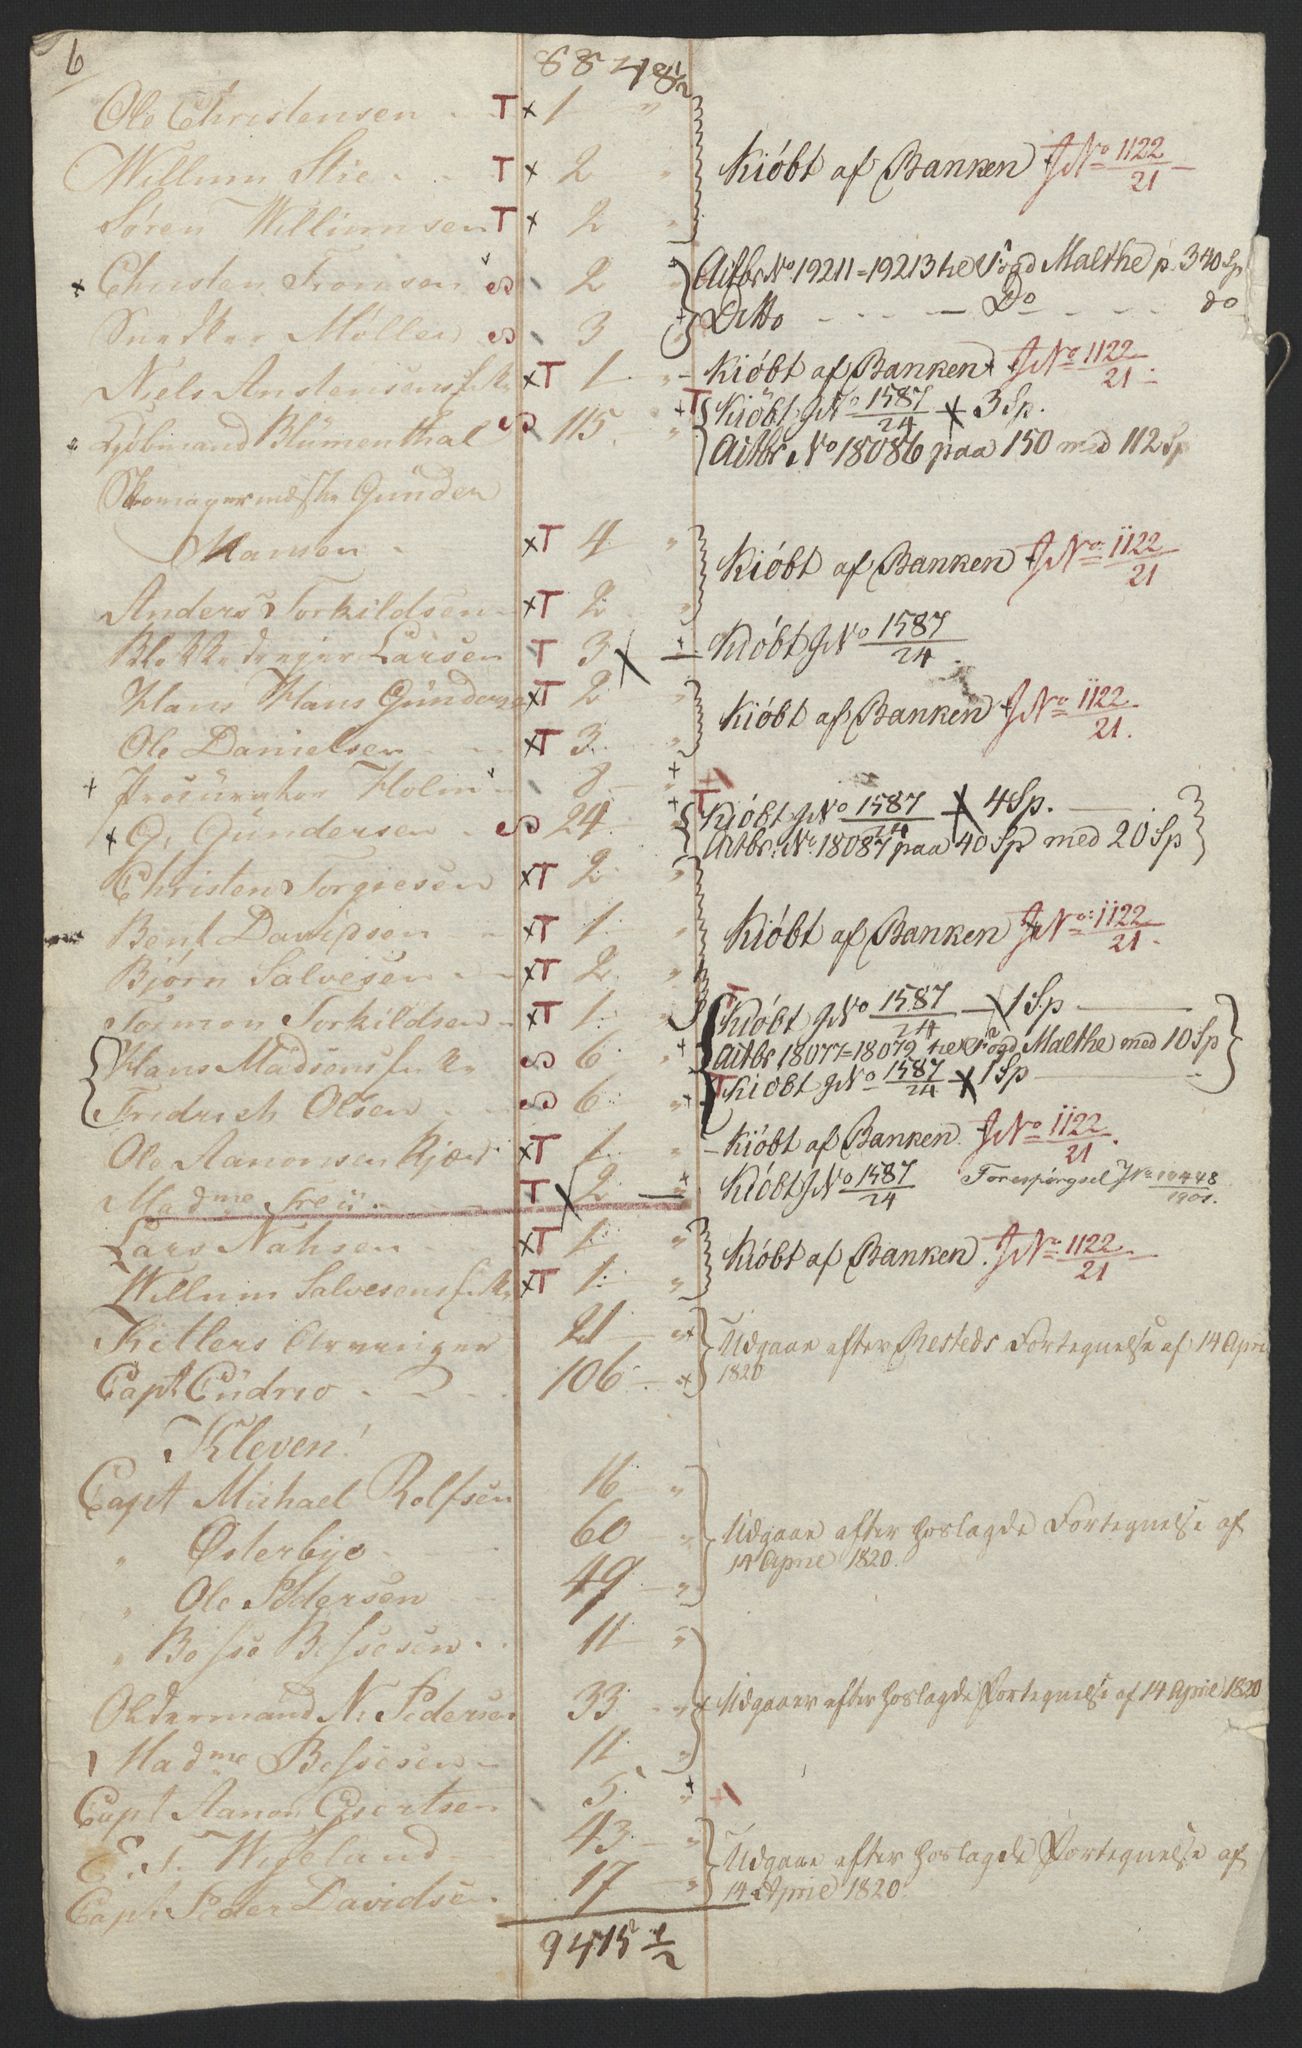 6 8848 1/2
Ole Christensen T x 1 "
Willum Stie T x 2 " Kiöbt af Banken JNo 1122/21
Søren Willumsen T x 2 "
x Christen Tromsen 2 " Actbr No 19211=19213 til Fogd Malthe p. 340 Sp
Snedker Møller 3 Ditto Do do
Niels Anstensens Enke xT 1 " Kiöbt af Banken JNo 1122/21
Kjöbmand Blümenthal 115 " T Kiöbt JNo 1587/24 x 3 Sp.
Actbr No 18086 paa 150 med 112 Sp
Skomagermester Günder
Hansen xT 4 " Kiöbt af Banken JNo 1122/21
Anders Torkildsen xT 2 "
Blokkedreier Larsen T 3 Kiöbt JNo 1587/24
Hans Hans Gündersen xT 2 " Kiöbt af Banken JNo 1122/21
Ole Danielsen xT 3 "
+ Procurator Holm 8
+ G. Gündersen 24 T Kiöbt JNo 1587/24 x 4 Sp.
Actbr. No 18087 paa 40 Sp med 20 Sp
Christen Torgiesen xT 2 "
Bent Davidsen xT 1 " Kiöbt af Banken JNo 1122/21
Bjørn Salvesen xT 2 "
Tormon Torkildsen xT 1 " T Kiöbt JNo 1587/24 1 Sp
Hans Madsens Enke 6 " Actbr 18077=18079 til Fogd Malthe med 10 Sp
Fredrich Olsen 6 " T Kiöbt JNo 1587/24 x 1 Sp
Ole Aanonsen Kjær xT 1 " Kiöbt af Banken JNo 1122/21
Madme Freii T 2 " Kiöbt JNo 1587/24 Forespörgsel JNo 10448/1901.
Lars Nahsen xT 1 " Kiöbt af Banken JNo 1122/21
Willum Salvesens Enke xT 1 "
Kitlers Arvinger 21 " Udgaar efter Resteds Fortegnelse af 14 April
Capt Cudrio 106 1820
Kleven!
Capt Michael Rolfsen 16 "
" Østerbye 60 " Udgaar efter hoslagde Fortegnelse af
" Ole Pedersen 49 " 14 April 1820.
" Bosse Bessesen 11 "
Oldermand N. Pedersen 33 " Udgaaer efter hoslagde Fortegnelse af 14 April 1820
Madme Bessesen 11 "
Capt Aanon Evertsen 5 "
E. T. Wigeland 43 " Udgaar efter hoslagde Fortegnelse af
Capt. Peder Davidsen 17 " 14 April 1820.
9475 1/2